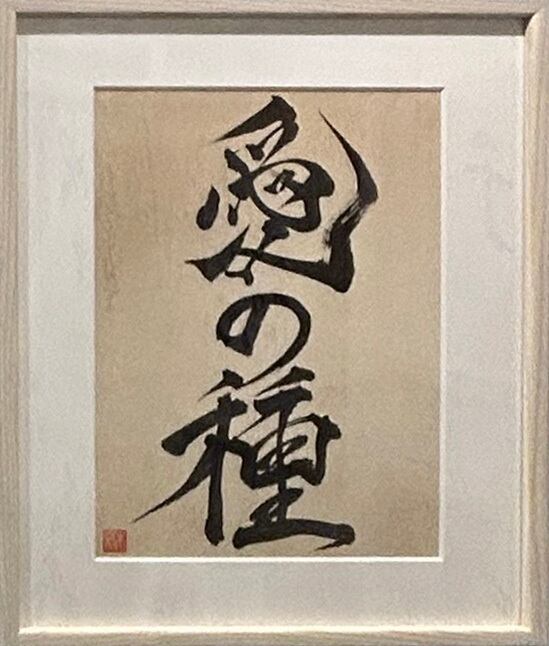 愛の種